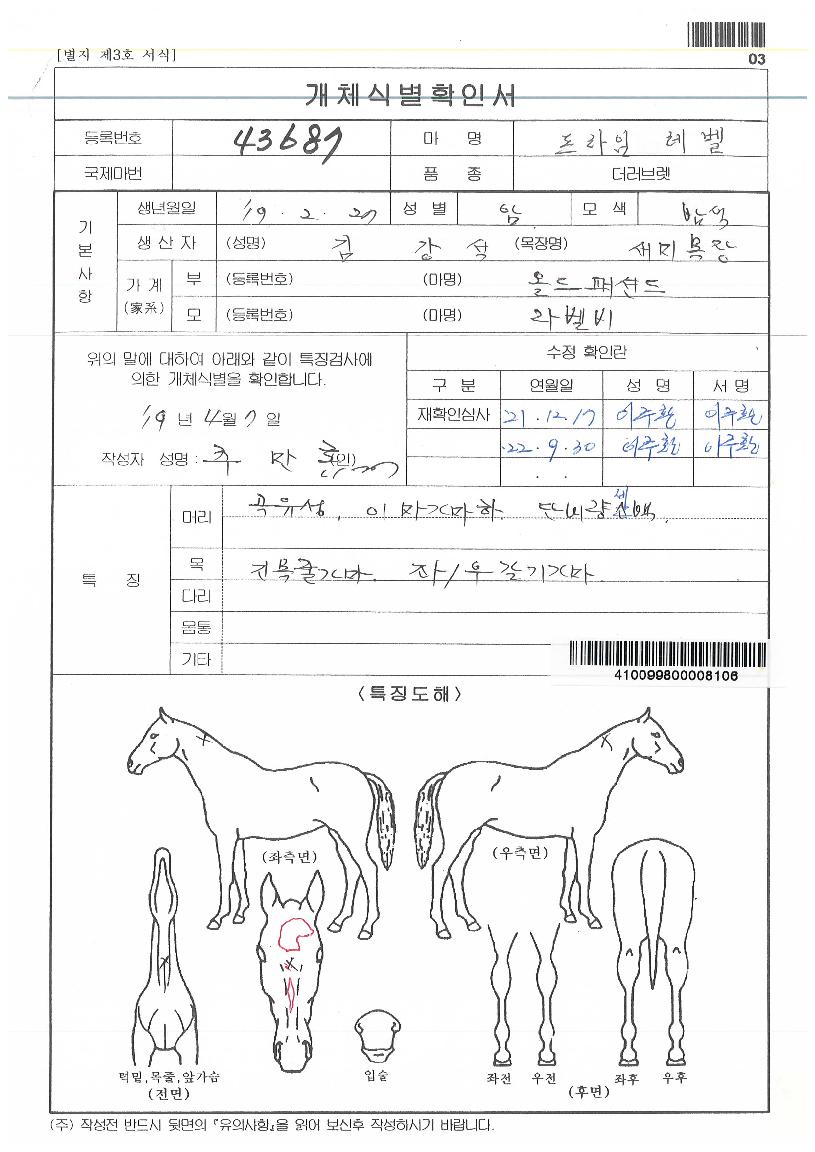 [별지 제3호 서식]
03
개체식별확인서
등록번호 43687 마 명 프라임 레벨
국제마번 품 종 더러브렛
기본사항
생년월일 '19 . 2 . 27 성 별 암 모 색 밤색
생 산 자 (성명) 김 강 석 (목장명) 새미목장
가 계 (家系) 부 (등록번호) (마명) 올드패션드
모 (등록번호) (마명) 라벨비
위의 말에 대하여 아래와 같이 특징검사에
의한 개체식별을 확인합니다.
'19 년 4월 7 일
작성자 성명 : (인)
수정 확인란
구 분 연월일 성 명 서 명
재확인심사 21 . 12 . 17 이주환 이주환
22 . 9 . 30 이주환 이주환
. .
특 징
머리 곡유성, 이마가마하 비량
목 가마. 좌/우갈기가마
다리
몸통
기타
410099800008106
〈특징도해〉
(좌측면) (우측면)
턱밑,목줄,앞가슴
(전면)
입술
좌전 우전 좌후 우후
(후면)
(주) 작성전 반드시 뒷면의 『유의사항』을 읽어 보신후 작성하시기 바랍니다.